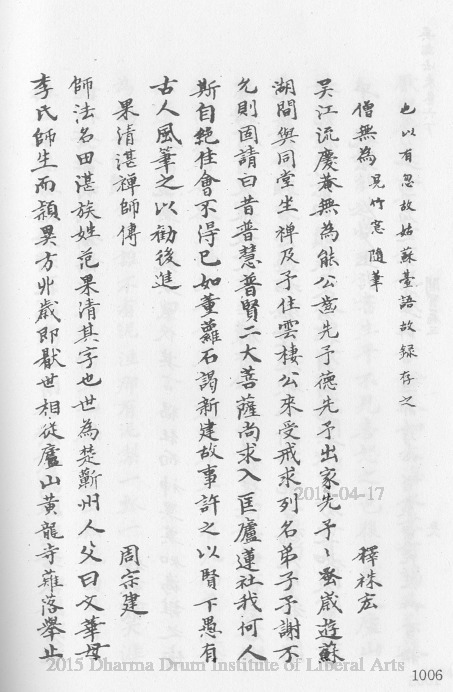 也以有忽故姑蘇臺語故錄存之
僧無為 見竹窓隨筆 釋祩宏
吳江流慶菴無為能公齒先予德先予出家先予、蚤歲遊蘇
湖間與同堂坐禪及予住雲棲公來受戒求列名弟子予謝不
允則固請曰昔普慧普賢二大菩薩尚求入匡廬蓮社我何人
斯自絕佳會不得已如董蘿石謁新建故事許之以賢下愚有
古人風筆之以勸後進
果清湛禪師傳 周宗建
師法名田湛族姓范果清其字也世為楚蘄州人父曰文華母
李氏師生而穎異方丱歲即厭世相從廬山黃龍寺薙落舉止
2015-04-17
2015 Dharma Drum Institute of Liberal Arts
1006